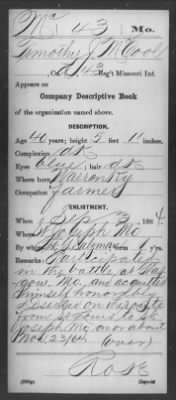 Mc 43 Mo.
Timothy J. McCool
Co. A, 43 Reg't Missouri Inf.
Appears on
Company Descriptive Book
of the organization named above.
DESCRIPTION.
Age 40 years; height 5 feet 11 inches.
Complexion dk
Eyes blue; hair dk
Where born
Occupation Farmer
ENLISTMENT.
When Sep 3, 1864.
Where St Joseph Mo
By whom term 1 y'rs.
Remarks: Participated
in the battle at Glas-
gow Mo, and acquitted
himself honorably
Deserted on route
from St Louis to St
Joseph Mo. on or about
Nov. 23/64 (over)
Rose
Copyist